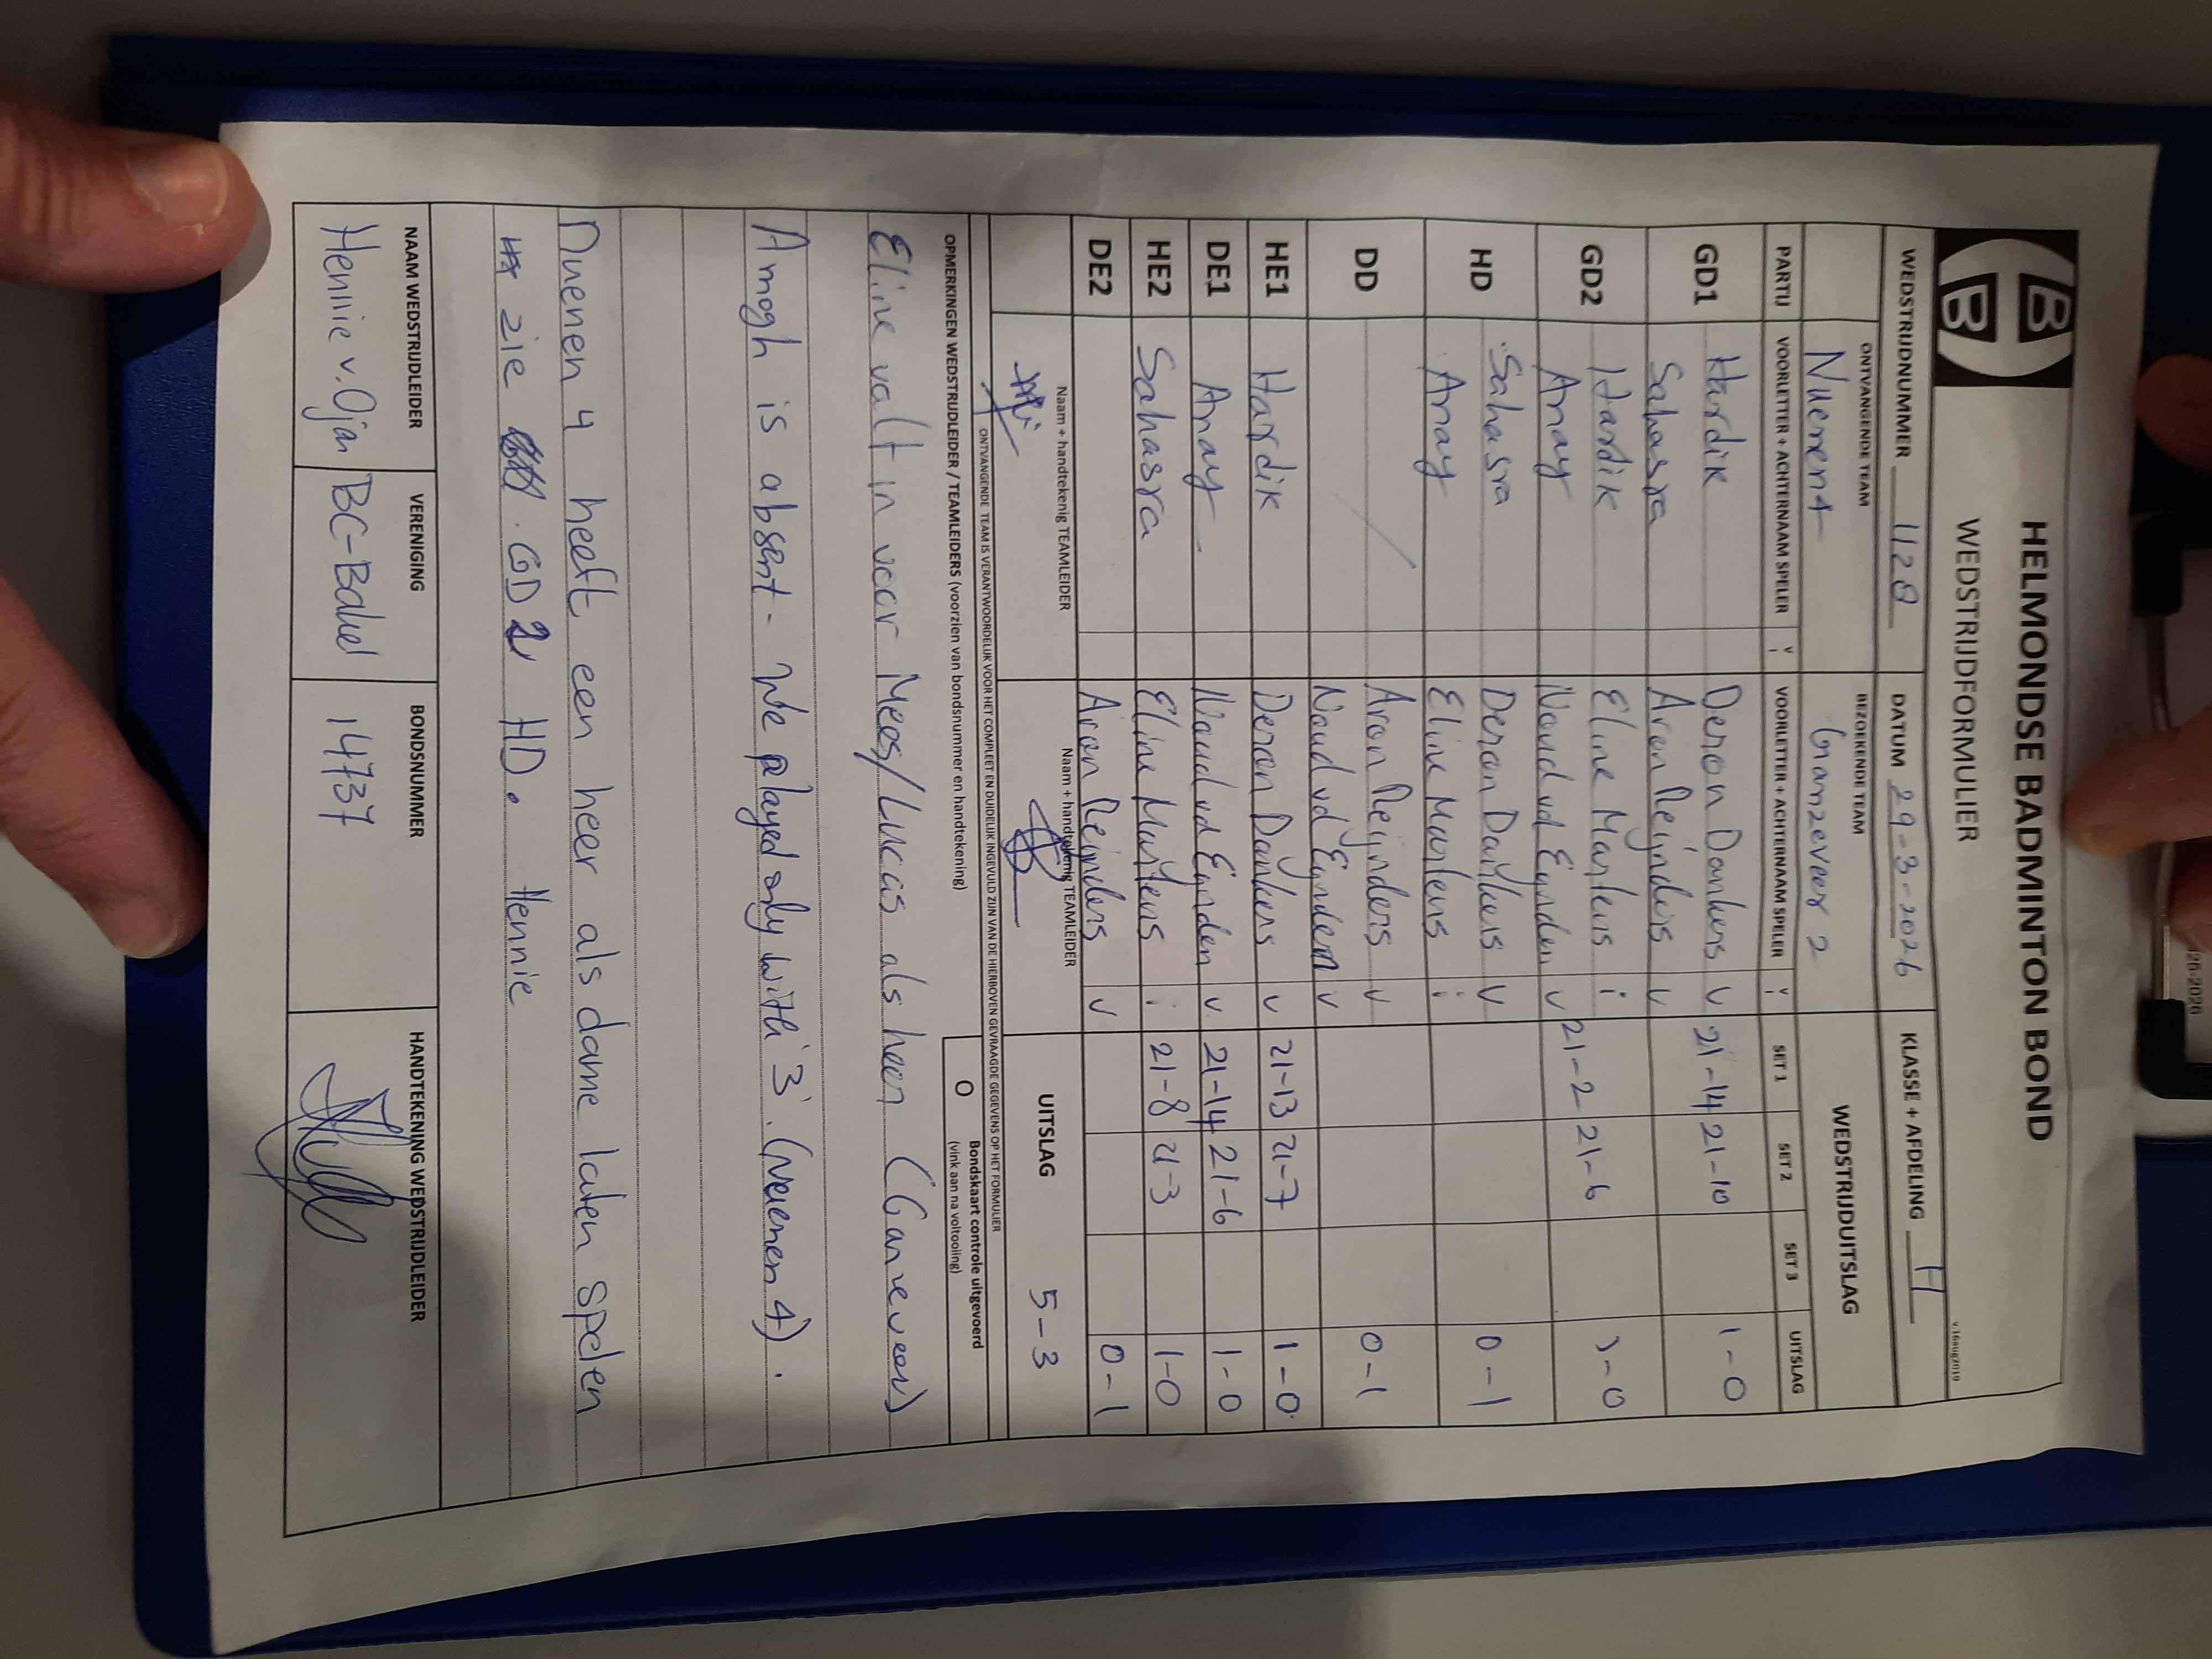 HELMONDSE BADMINTON BOND
WEDSTRIJDFORMULIER
v.16aug2019
WEDSTRIJDNUMMER 1128 DATUM 29-3-2026 KLASSE + AFDELING H
ONTVANGENDE TEAM BEZOEKENDE TEAM WEDSTRIJDUITSLAG
Nuenen 4 Ganzeveer 2
PARTIJ VOORLETTER + ACHTERNAAM SPELER V I VOORLETTER + ACHTERNAAM SPELER V I SET 1 SET 2 SET 3 UITSLAG
GD1 Hardik Deron Dankers V 21-14 21-10 1-0
Sahasra Aron Reijnders V
GD2 Hardik Eline Martens i 21-2 21-6 1-0
Anay Noud vd Eijnden V
HD Sahasra Deron Dankers V 0-1
Anay Eline Martens i
DD Aron Reijnders V 0-1
Noud vd Eijnden V
HE1 Hardik Deron Dankers V 21-13 21-7 1-0
DE1 Anay Noud vd Eijnden V 21-14 21-6 1-0
HE2 Sahasra Eline Martens i 21-8 21-3 1-0
DE2 Aron Reijnders V 0-1
Naam + handtekenig TEAMLEIDER Naam + handtekenig TEAMLEIDER UITSLAG 5-3
ONTVANGENDE TEAM IS VERANTWOORDELIJK VOOR HET COMPLEET EN DUIDELIJK INGEVULD ZIJN VAN DE HIERBOVEN GEVRAAGDE GEGEVENS OP HET FORMULIER
OPMERKINGEN WEDSTRIJDLEIDER / TEAMLEIDERS (voorzien van bondsnummer en handtekening) O Bondskaart controle uitgevoerd
(vink aan na voltooiing)
Eline valt in voor Mees/Lucas als heer (Ganzeveer)
Amogh is absent - We played only with 3. (Nuenen 4).
Nuenen 4 heeft een heer als dame laten spelen
zie GD2 HD. Hennie
NAAM WEDSTRIJDLEIDER VERENIGING BONDSNUMMER HANDTEKENING WEDSTRIJDLEIDER
Hennie v. Ojen BC-Bakel 14737
26-2026